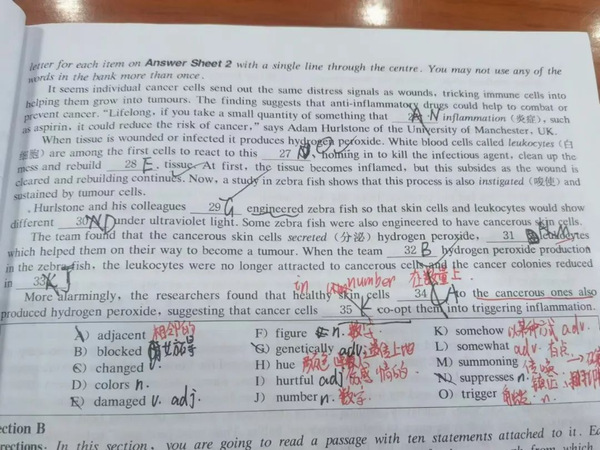 letter for each item on Answer Sheet 2 with a single line through the centre. You may not use any of the
words in the bank more than once.
It seems individual cancer cells send out the same distress signals as wounds, tricking immune cells into
helping them grow into tumours. The finding suggests that anti-inflammatory drugs could help to combat or
prevent cancer. "Lifelong, if you take a small quantity of something that N inflammation (炎症), such
as aspirin, it could reduce the risk of cancer," says Adam Hurlstone of the University of Manchester, UK.
When tissue is wounded or infected it produces hydrogen peroxide. White blood cells called leukocytes (白
细胞) are among the first cells to react to this 27 O, homing in to kill the infectious agent, clean up the
mess and rebuild 28 E. tissue. At first, the tissue becomes inflamed, but this subsides as the wound is
cleared and rebuilding continues. Now, a study in zebra fish shows that this process is also instigated (唆使) and
sustained by tumour cells.
Hurlstone and his colleagues 29 G engineered zebra fish so that skin cells and leukocytes would show
different 30 D under ultraviolet light. Some zebra fish were also engineered to have cancerous skin cells.
The team found that the cancerous skin cells secreted (分泌) hydrogen peroxide, 31 M leukocytes
which helped them on their way to become a tumour. When the team 32 B hydrogen peroxide production
in the zebra fish, the leukocytes were no longer attracted to cancerous cells and the cancer colonies reduced
in 33 J
in number 在数量上
More alarmingly, the researchers found that healthy skin cells 34 A to the cancerous ones also
produced hydrogen peroxide, suggesting that cancer cells 35 K co-opt them into triggering inflammation.
A) adjacent 相邻的 F) figure n. 数字 K) somehow adv.
B) blocked G) genetically adv. L) somewhat adv. 有点
C) changed v. H) hue M) summoning
D) colors n. I) hurtful adj N) suppresses
E) damaged v. adj. J) number n. 数字 O) trigger n.
ection B
rections: In this section, you are going to read a passage with ten statements attached to it. Ea